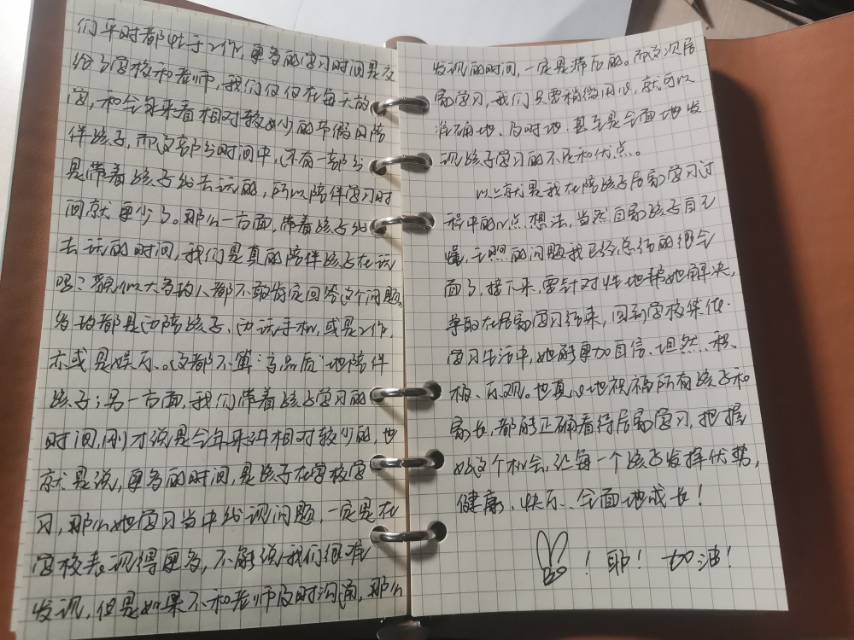 们平时都忙于工作，更多的学习时间是交
给了学校和老师，我们仅仅在每天放
学，和全年来看相对较少的节假日陪
伴孩子，而这部分时间中，还有一部分
是带着孩子出去玩的，所以陪伴学习时
间就更少了。那么一方面，带着孩子出
去玩的时间，我们是真的陪伴孩子在玩
吗？貌似大多数人都不敢肯定回答这个问题，
当都是边陪孩子，边玩手机，或是工作，
亦或是娱乐。这都不算“高品质”地陪伴
孩子；另一方面，我们带着孩子学习的
时间，刚才说是全年来讲相对较少的，也
就是说，更多的时间，是孩子在学校学
习，那么她学习当中出现问题，一定是在
学校表现得更多，不能说我们很难
发现，但是如果不和老师及时沟通，那么
发现的时间，一定是滞后的。而这次居
家学习，我们只要稍微用心，就可以
准确地、及时地、甚至是全面地发
现孩子学习的不足和优点。
以上就是我在陪孩子居家学习过
程中的一点想法，当然自家孩子自己
懂，的问题我已经总结的很全
面了，接下来，要针对性地帮她解决，
争取在居家学习结束，回到学校集体
学习生活中，她能更加自信、坦然、积
极、乐观。也真心地祝福所有孩子和
家长，都能正确看待居家学习，把握
好这个机会，让每一个孩子发挥优势，
健康、快乐、全面地成长！
！耶！加油！